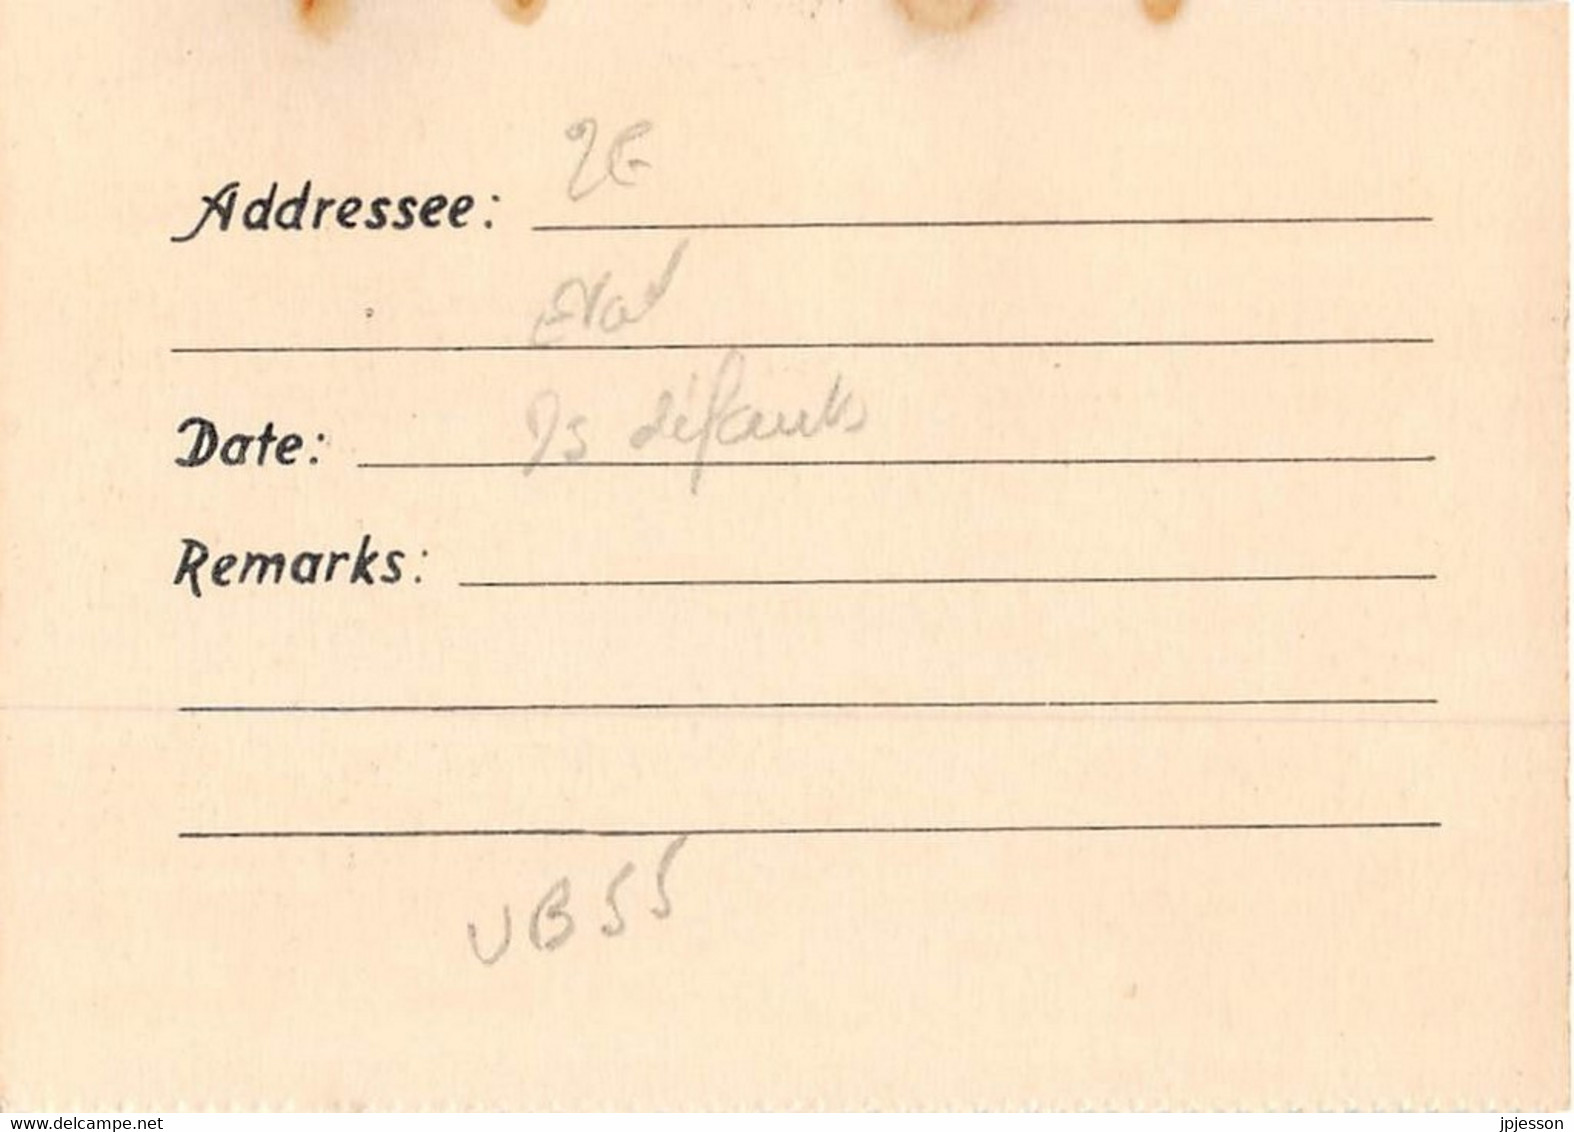 2E
Addressee:
état
Ds défauts
Date:
Remarks:
UB55
www.delcampe.net
jpjesson